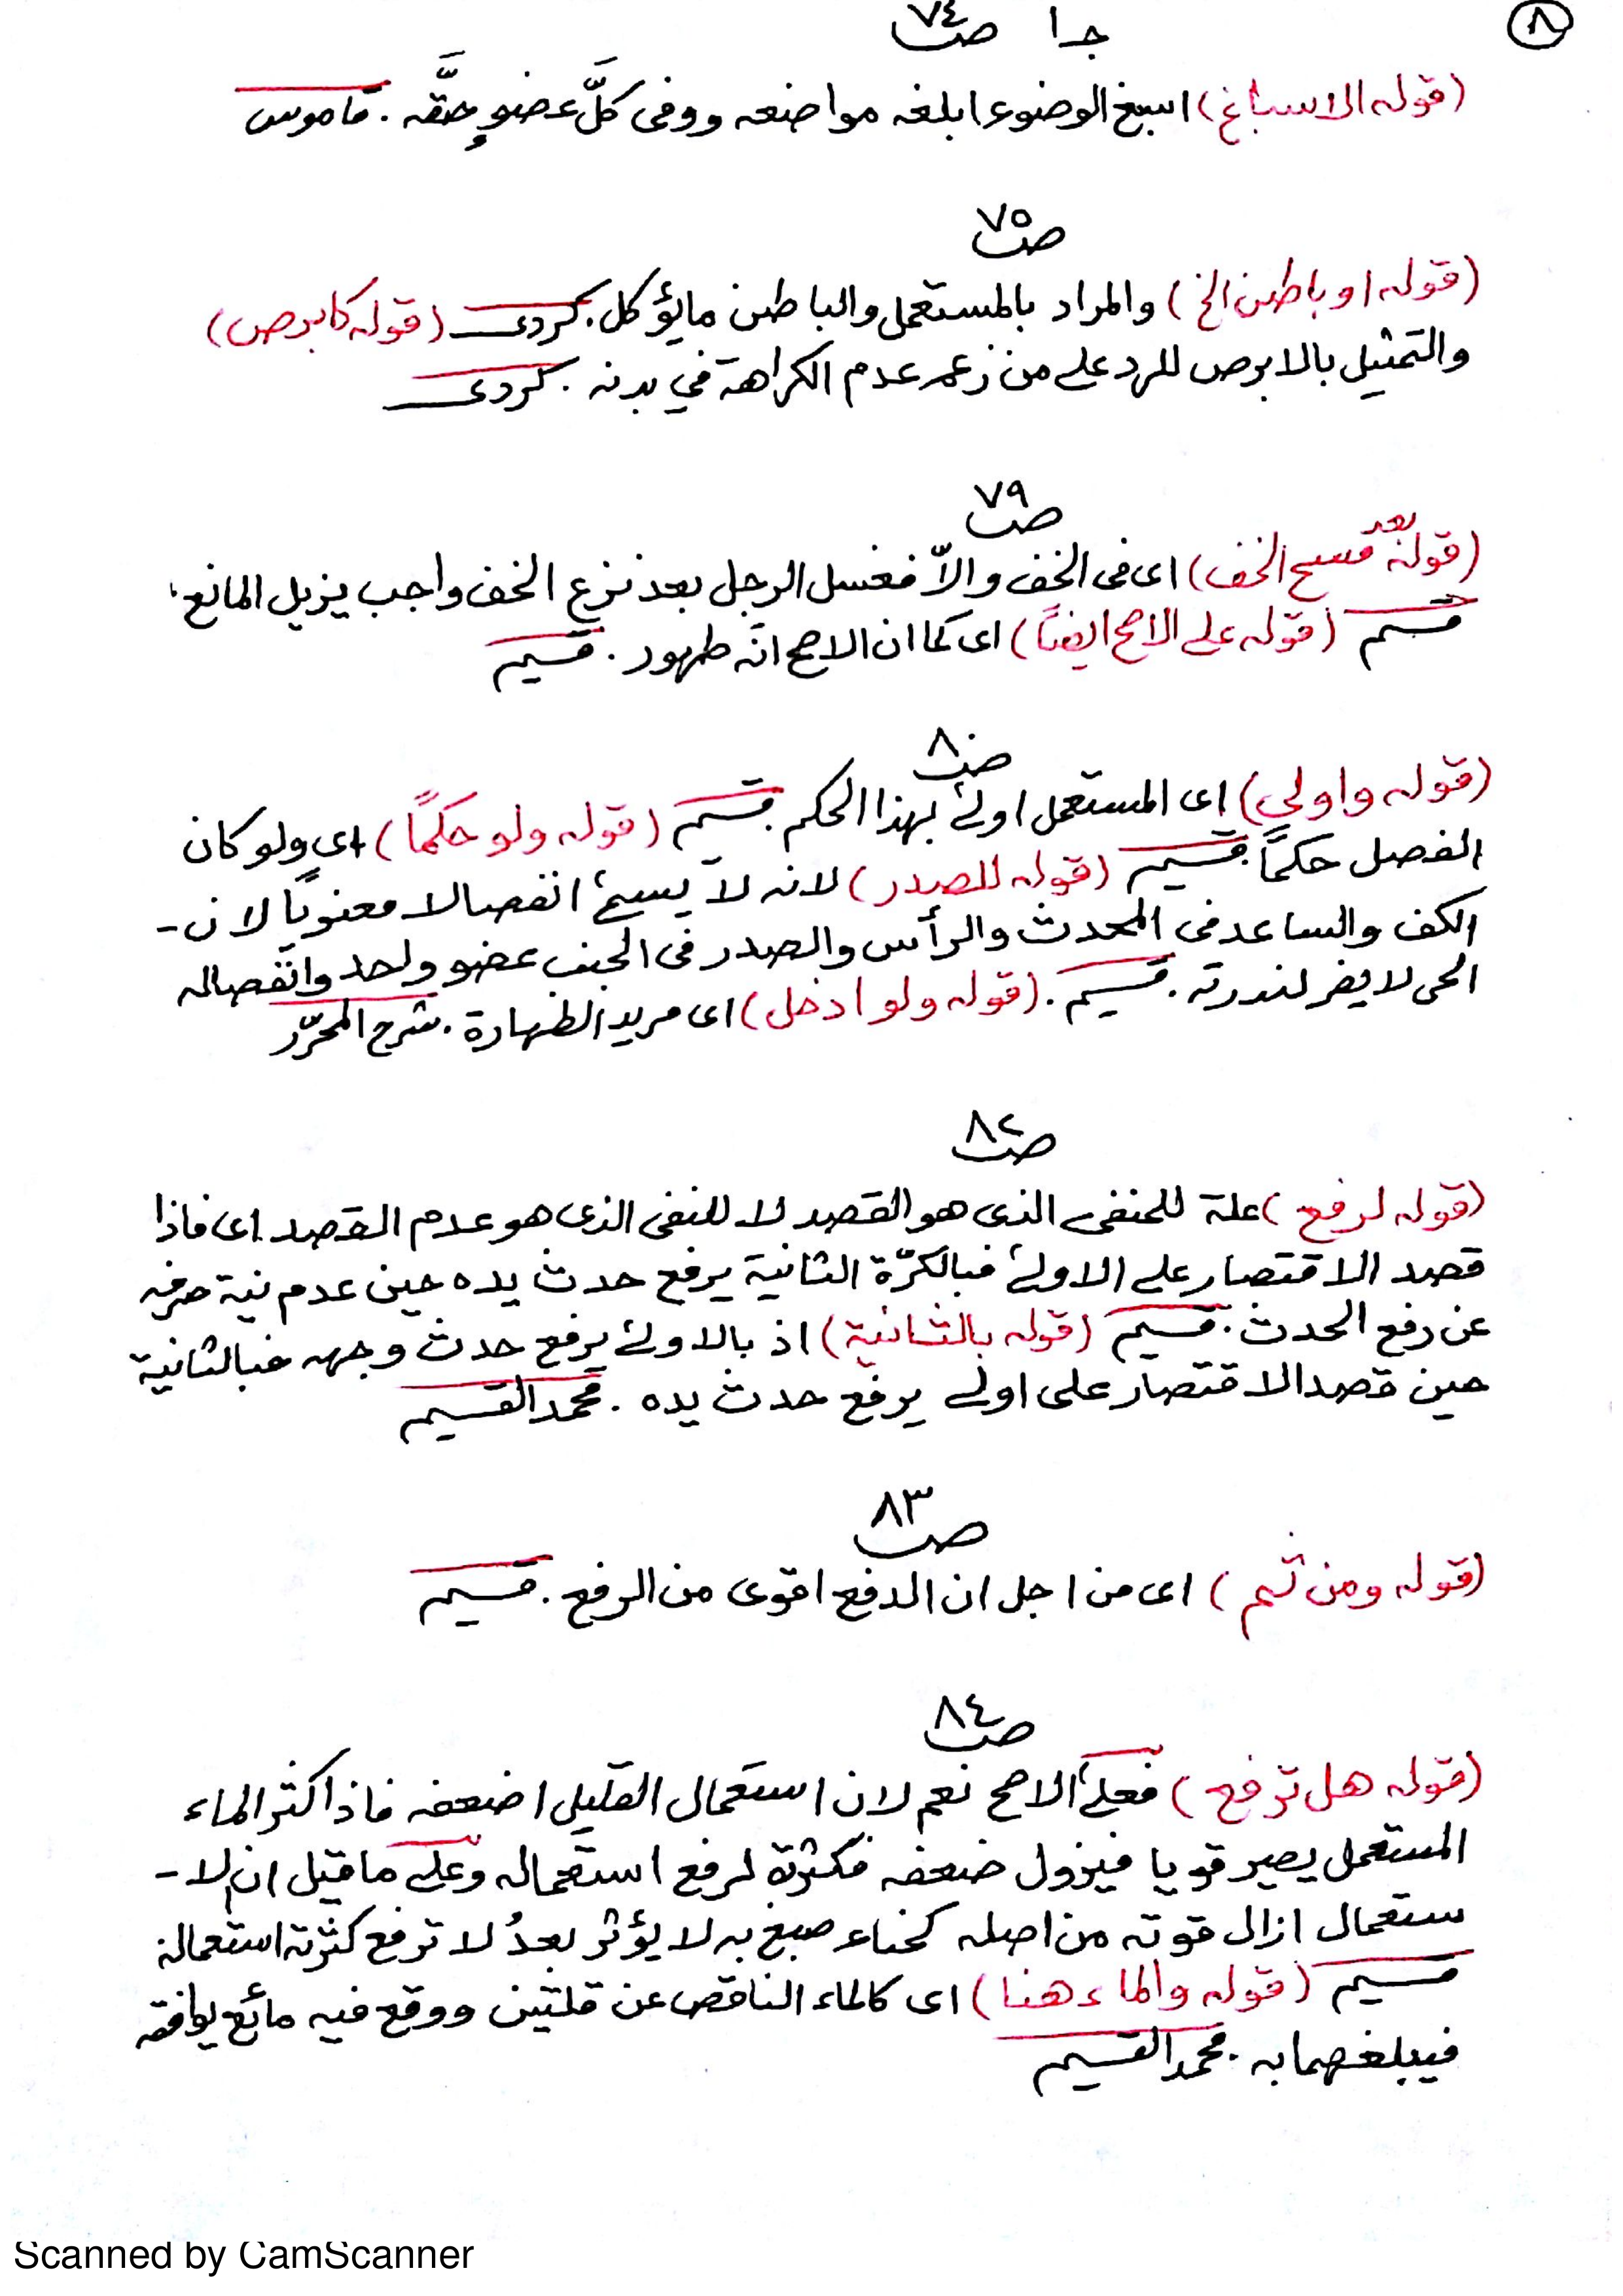 ٨
جـ١ صـ٧٤
(قوله الاسباغ) اسبغ الوضوء ابلغه مواضعه ووفى كلَّ عضوٍ حقَّه . قاموس
صـ٧٥
(قوله او باطن الخ) والمراد بالمستعمل والباطن مايؤكل . كردى (قوله كابرص)
والتمثيل بالابرص للرد على من زعم عدم الكراهة في بدنه . كردى
صـ٧٩
(قوله بعد مسح الخف) اى فى الخف والاّ فغسل الرجل بعد نزع الخف واجب يزيل المانع .
قسيم (قوله على الاصح ايضاً) اى كما ان الاصح انّه طهور . قسيم
صـ٨٠
(قوله واولى) اى المستعمل اولى بهذا الحكم . قسيم (قوله ولو حكماً) اى ولو كان
الفصل حكماً . قسيم (قوله للصدر) لانه لا يسمىٰ انفصالا معنويًا لان -
الكف والساعد فى المحدث والرأس والصدر فى الجنب عضو واحد وانفصاله
الحى لا يضر لندرته . قسيم . (قوله ولو ادخل) اى مريد الطهارة . شرح المحرّر
صـ٨٢
(قوله لرفع) علة للمنفى الذى هو القصد لا للنفى الذى هو عدم القصد اى فاذا
قصد الاقتصار على الاولىٰ فبالكرّة الثانية يرفع حدث يده حين عدم نية صرفه
عن رفع الحدث . قسيم (قوله بالثانية) اذ بالاولىٰ يرفع حدث وجهه فبالثانية
حين قصد الاقتصار على اولى يرفع حدث يده . محمد القسيم
صـ٨٣
(قوله ومن ثم) اى من اجل ان الدفع اقوى من الرفع . قسيم
صـ٨٤
(قوله هل ترفع) فعلىٰ الاصح نعم لان استعمال القليل اضعفه فاذا كثر الماء
المستعمل يصير قويا فيزول ضعفه فكثرته لرفع استعماله وعلى ما قيل ان الا -
ستعمال ازال قوته من اصله كحناء صبغ به لا يؤثر بعدُ لا ترفع كثرته استعماله
قسيم (قوله والماء هنا) اى كالماء الناقص عن قلتين ووقع فيه مائع يوافقه
فيبلغهما به . محمد القسيم
Scanned by CamScanner